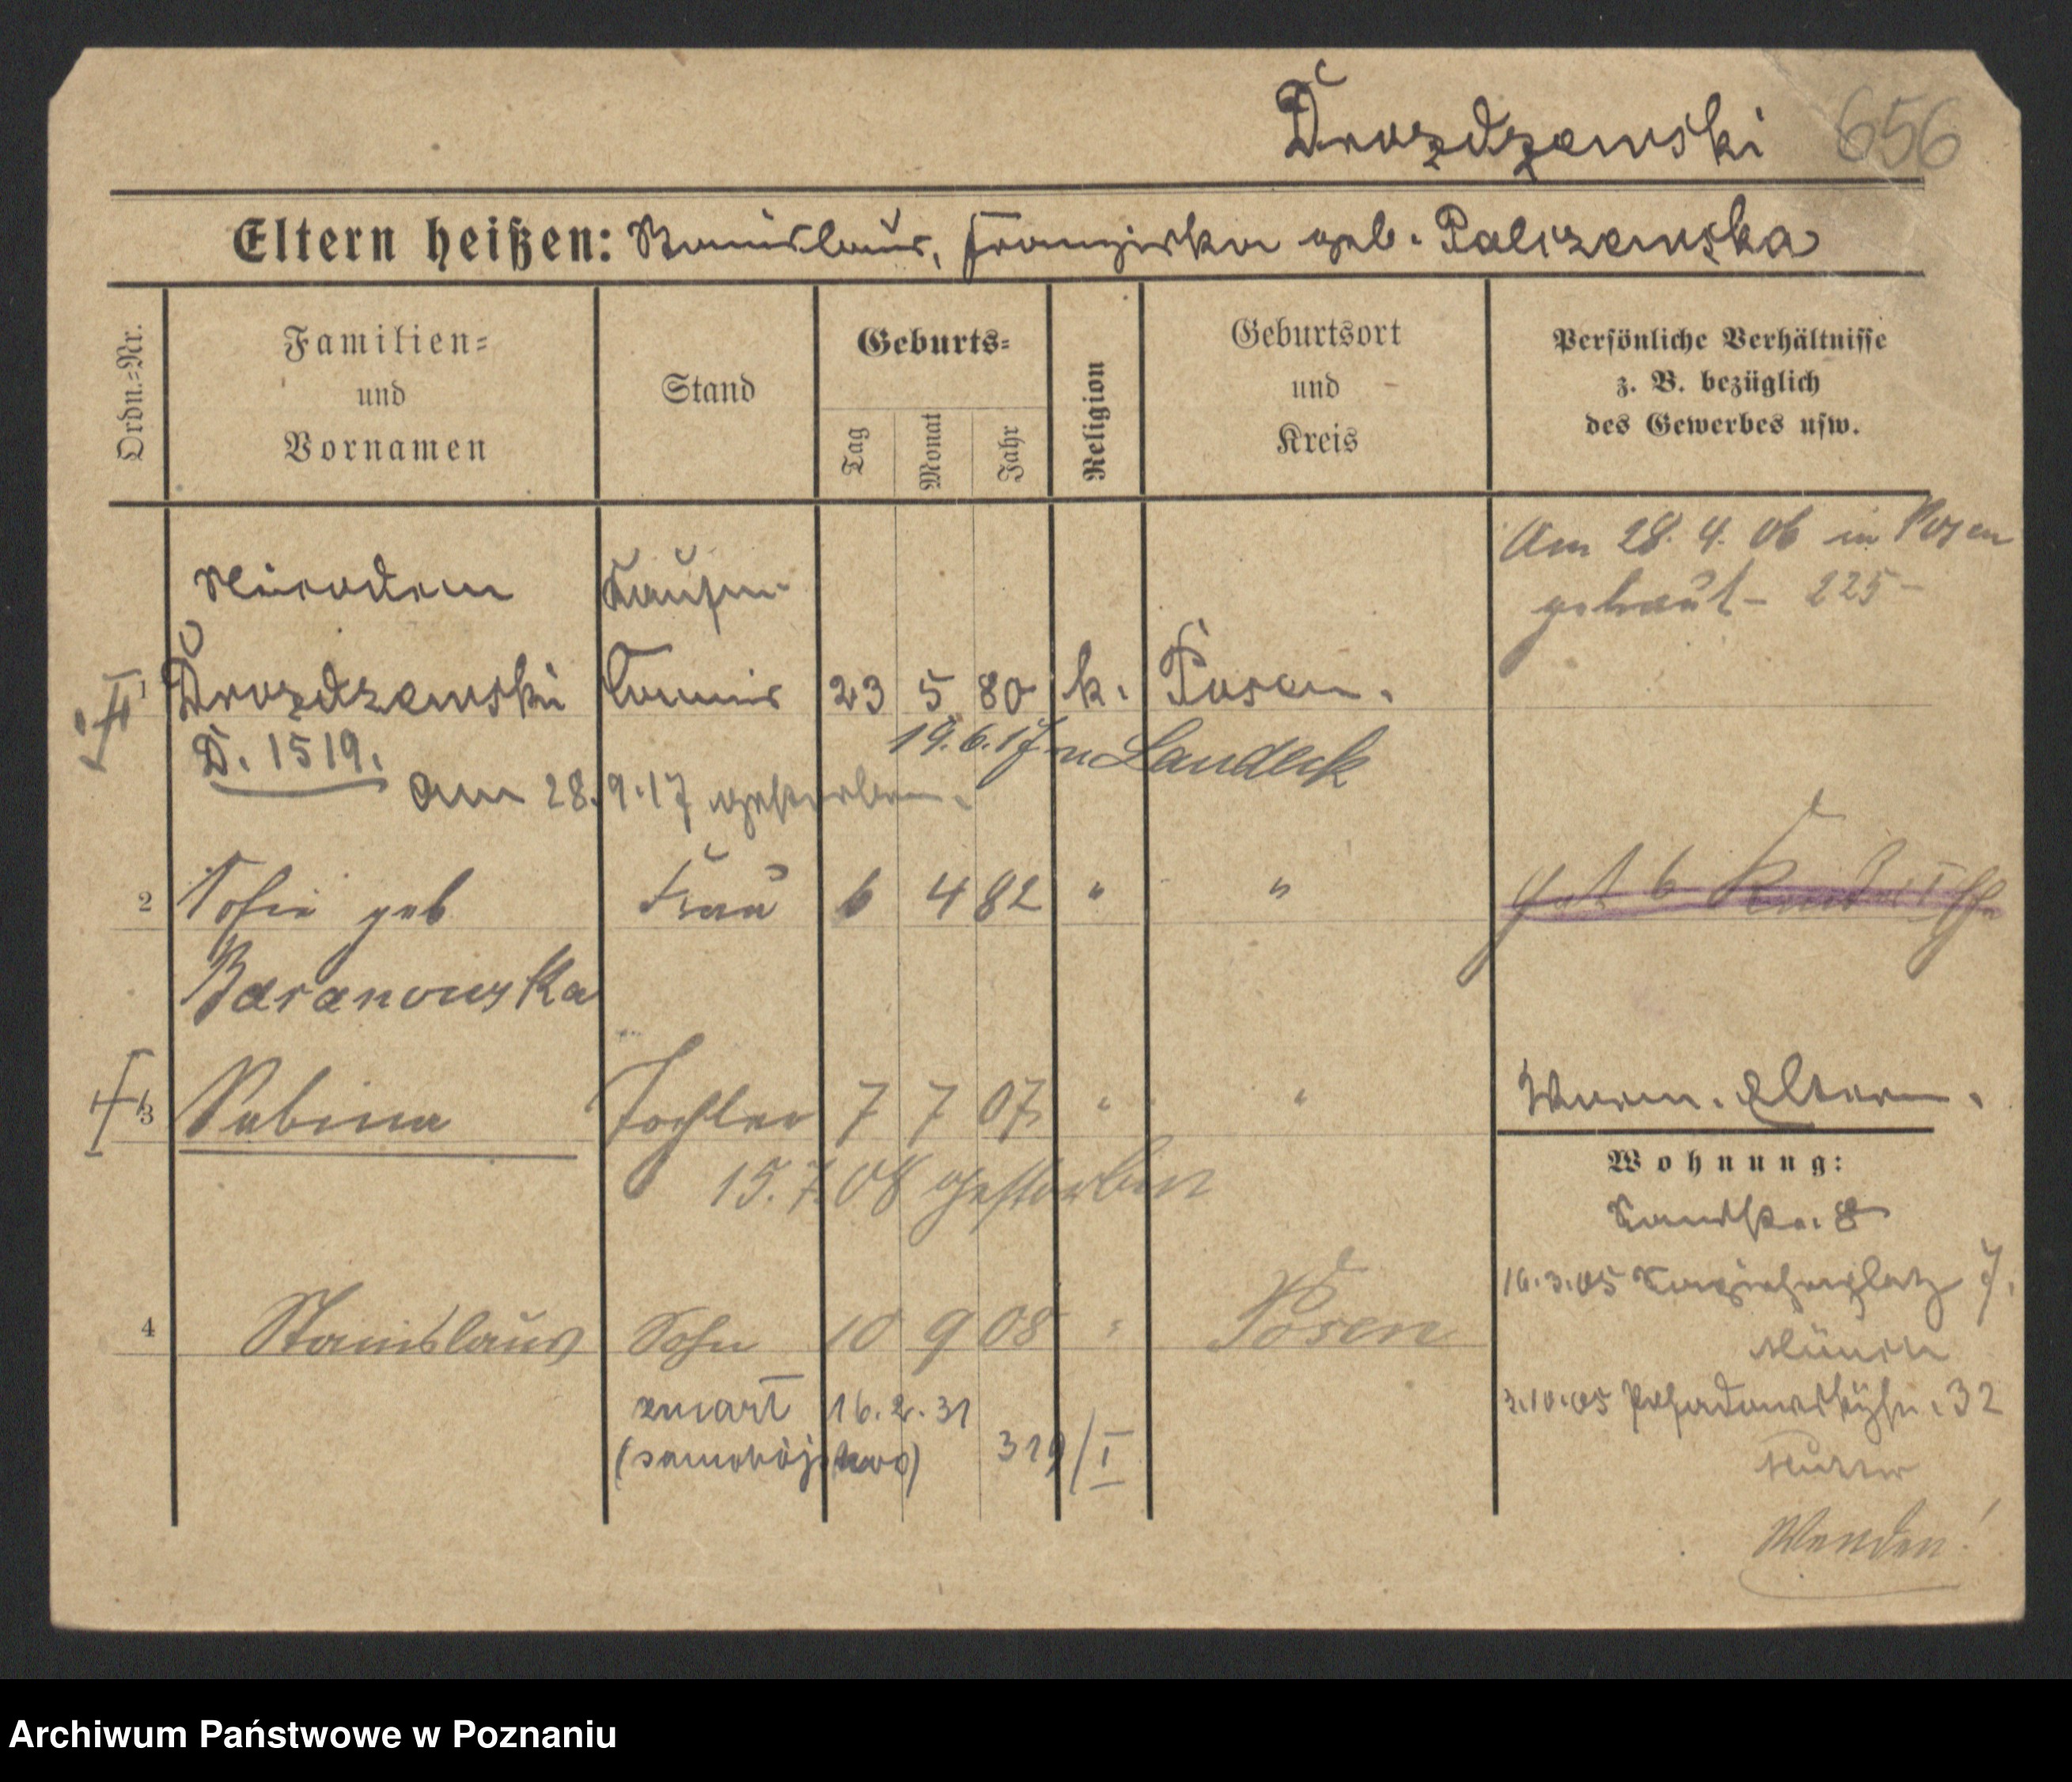 Drozdzewski 656
Eltern heißen: Stanislaus, Franziska geb. Paliszewska
Ordn.-Nr.
Familien-
und
Vornamen
Stand
Geburts-
Tag
Monat
Jahr
Religion
Geburtsort
und
Kreis
Persönliche Verhältnisse
z. B. bezüglich
des Gewerbes usw.
Am 28. 4. 06 in Posen
getraut - 225 -
1 Nicodem Kaufm.
Drozdzewski Commis 23 5 80 k. Posen.
D. 1519.
19.6.17 n Landeck
am 28.9.17 gestorben.
2 Sofie geb Frau 6 4 82 " "
Baranowska
3 Sabina Tochter 7 7 07 " "
15.7.08 gestorben
4 Stanislaus Sohn 10 9 08 " Posen
zmarł 16.2.31
(samobójstwo) 319/I
Eltern.
Wohnung:
8
16.3.05 7.
3.10.05 32
Wenden!
Archiwum Państwowe w Poznaniu